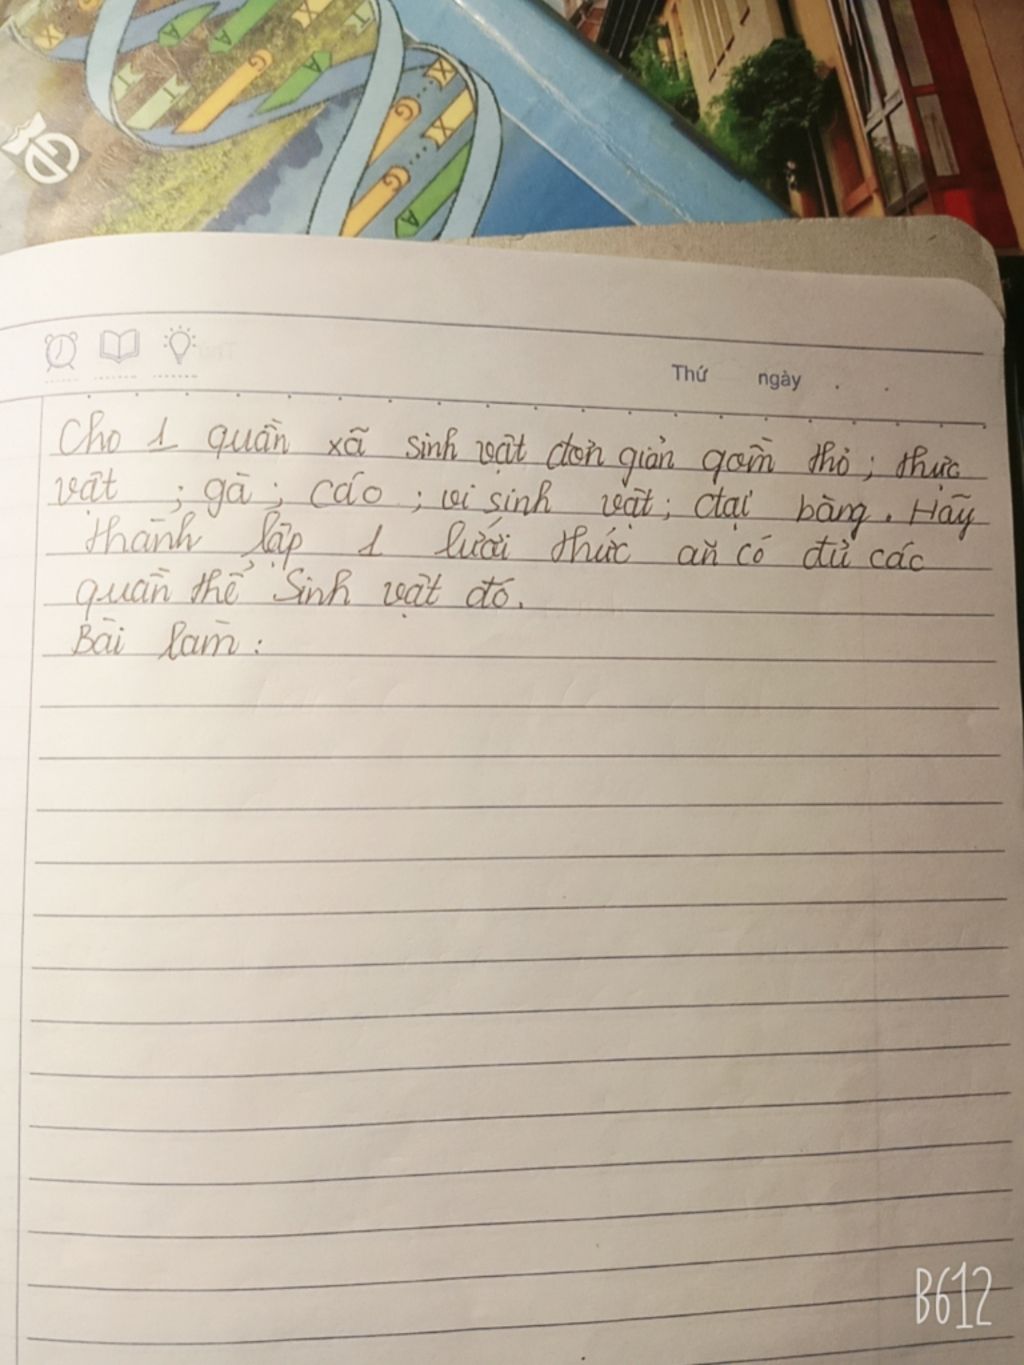 X T A A
T G A X
G X
G A
Thứ ngày . .
Cho 1 quần xã sinh vật đơn giản gồm thỏ; thực
vật ; gà ; cáo ; vi sinh vật; đại bàng. Hãy
thành lập 1 lưới thức ăn có đủ các
quần thể sinh vật đó.
Bài làm :
B612